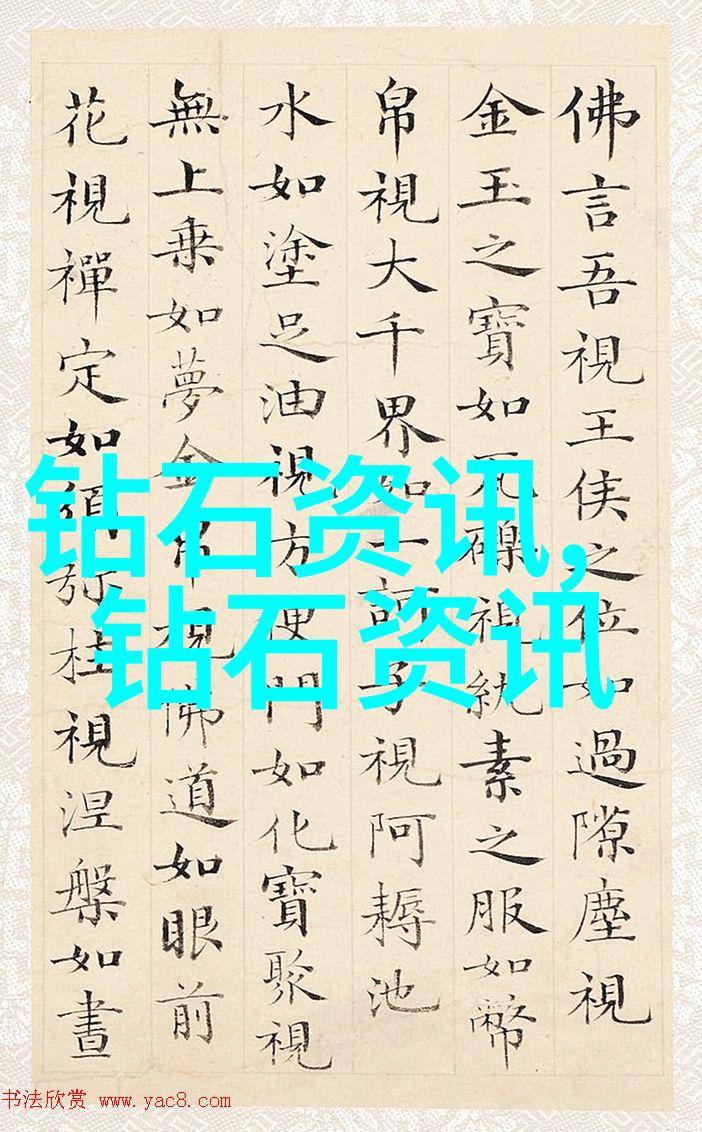 佛言吾視王侯之位如過隙塵視
金玉之寶如瓦礫視紈素之服如幣
帛視大千界如一訶子視阿耨池
水如塗足油視方便門如化寶聚視
無上乗如夢金帛視佛道如眼前
花視禪定如須弥柱視涅槃如晝
钻石资讯,
钻石资讯
书法欣赏 www.yac8.com